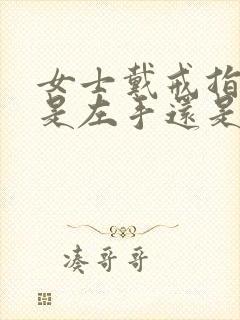 女士戴戒指
是左手還是
凑哥哥